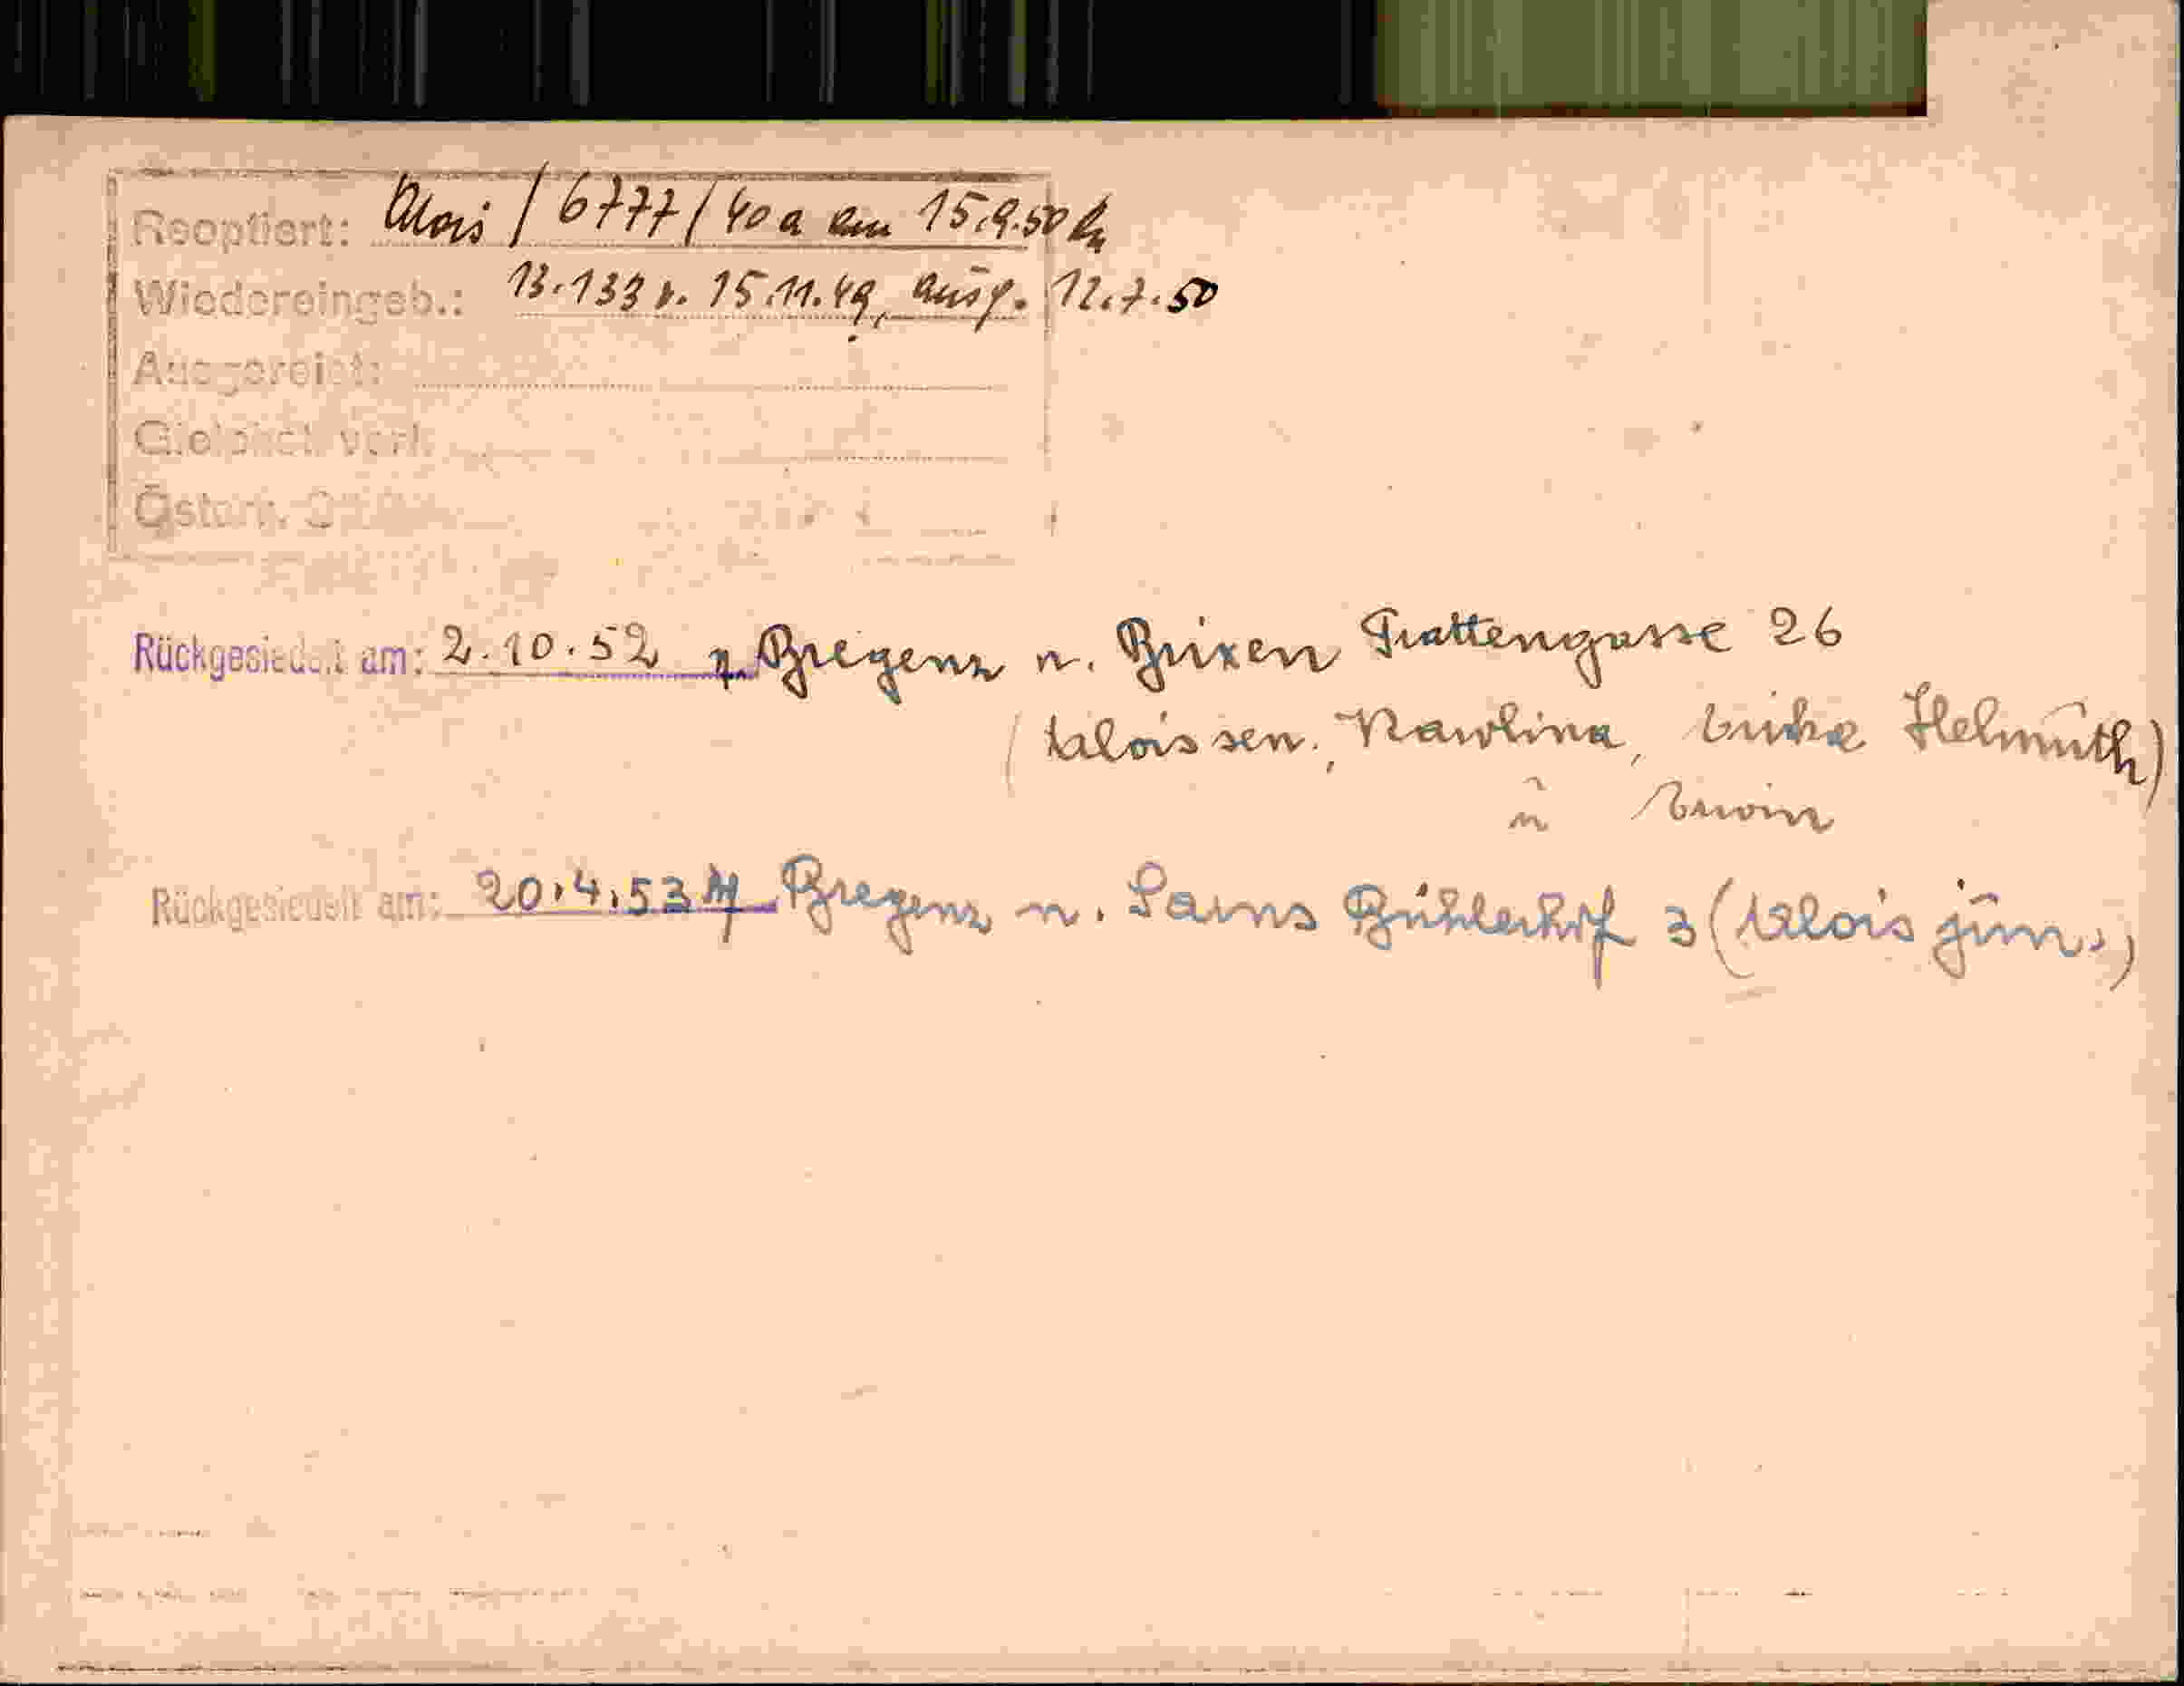 Reoptiert: Alois / 6777/40a am 15.9.50
Wiedereingeb.: 13.133 v. 15.11.49, ausg. 12.7.50
Ausgereist:
Österr.
Rückgesiedelt am: 2.10.52 v. Bregenz n. Brixen Trattengasse 26
(Alois sen., Paulina, Helmuth)
u Erwin
Rückgesiedelt am: 20.4.53 v Bregenz n. Sarns Bühlerhof 3 (Alois jun.)